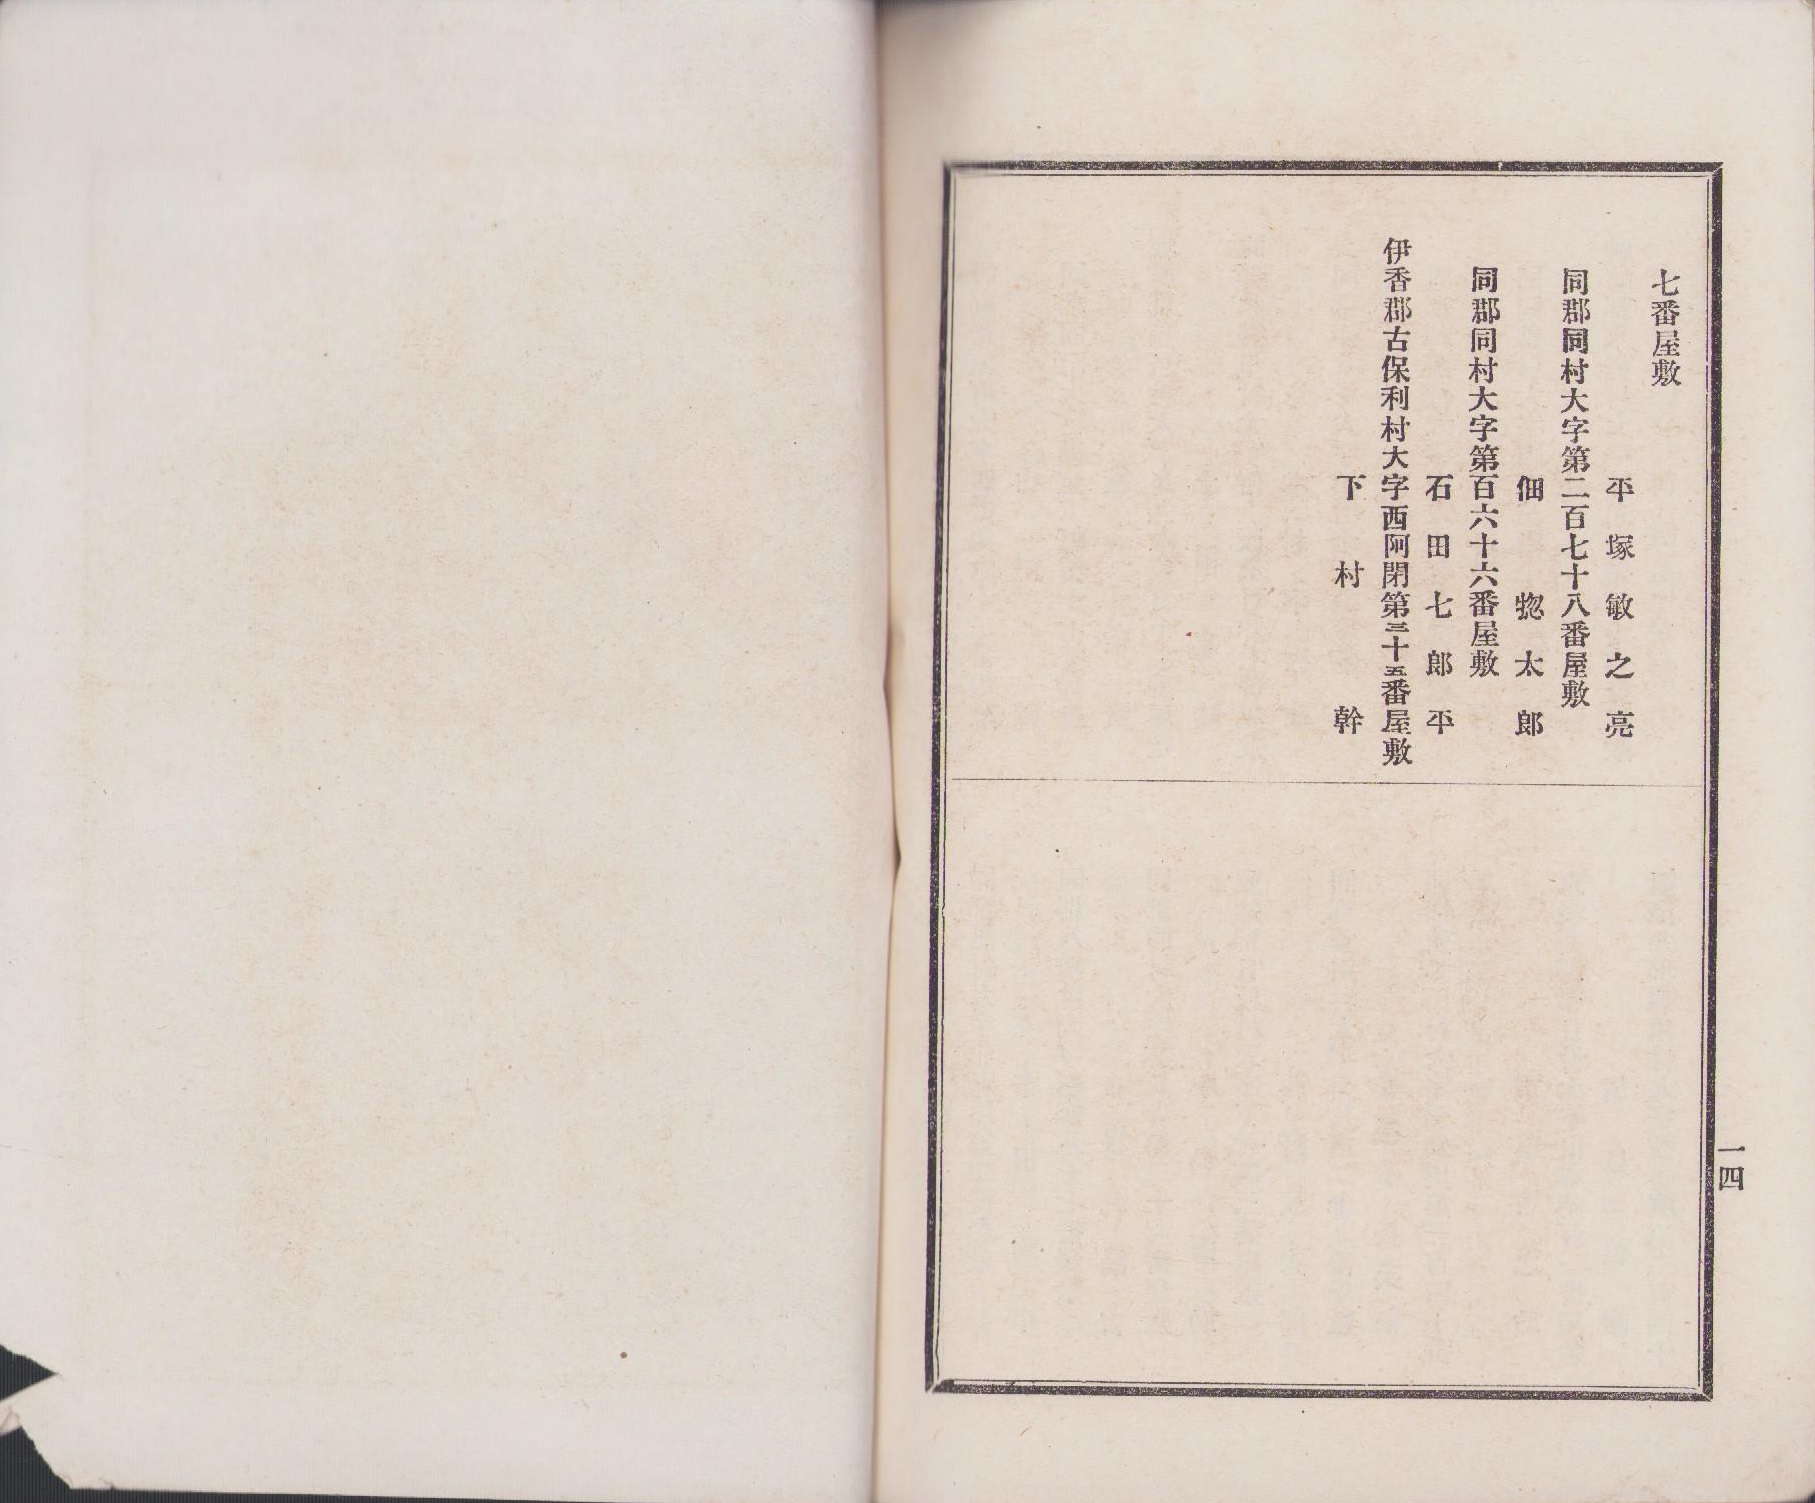 七番屋敷
平塚敏之亮
同郡同村大字第二百七十八番屋敷
佃惣太郎
同郡同村大字第百六十六番屋敷
石田七郎平
伊香郡古保利村大字西阿閉第三十五番屋敷
下村幹
一四